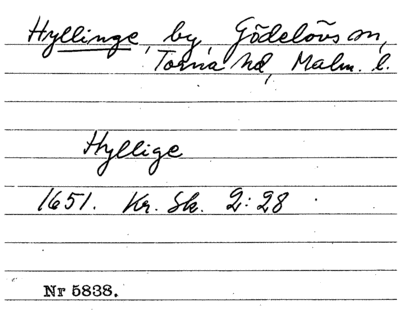 Hyllinge, by, Gödelövs sn,
Torna hd, Malm. l.
Hyllige
1651. Kr. Sk. 2:28
Nr 5838.